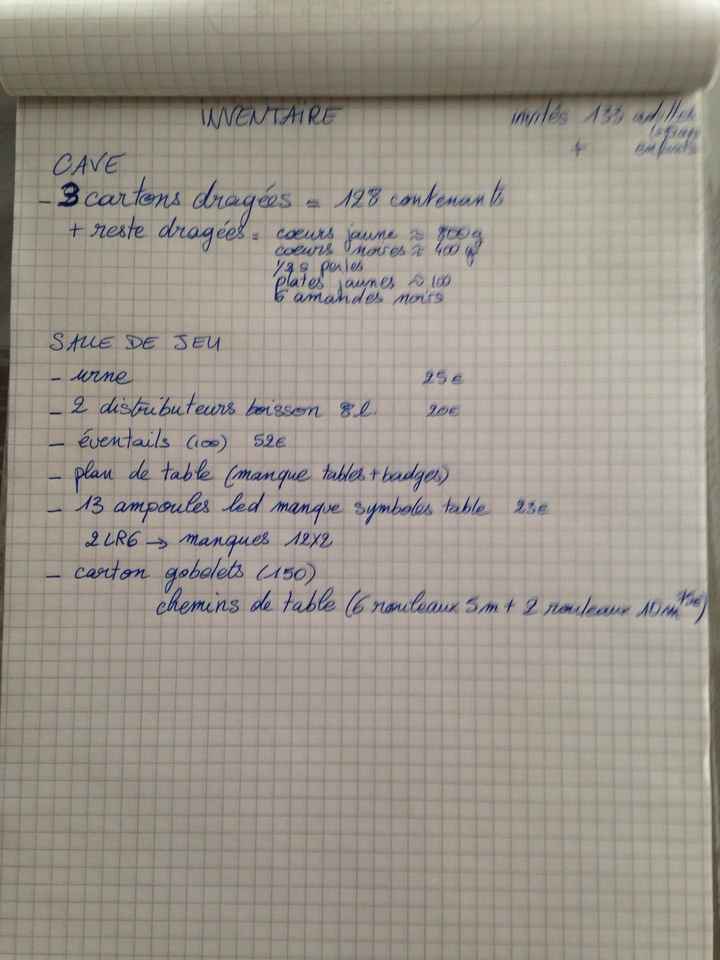 INVENTAIRE
invités 133 adultes
+ enfants
CAVE
- 3 cartons dragées = 128 contenants
+ reste dragées = coeurs jaune ≈ 800g
coeurs noires ≈ 400 g
perles
plates jaunes ≈ 100
6 amandes noirs
SALLE DE JEU
- urne 25€
- 2 distributeurs boisson 8l. 20€
- éventails (100) 52€
- plan de table (manque tables + badges)
- 13 ampoules led manque symboles table 23€
2 LR6 → manques 12x2
- carton gobelets (150)
chemins de table (6 rouleaux 5m + 2 rouleaux 10m 75€)